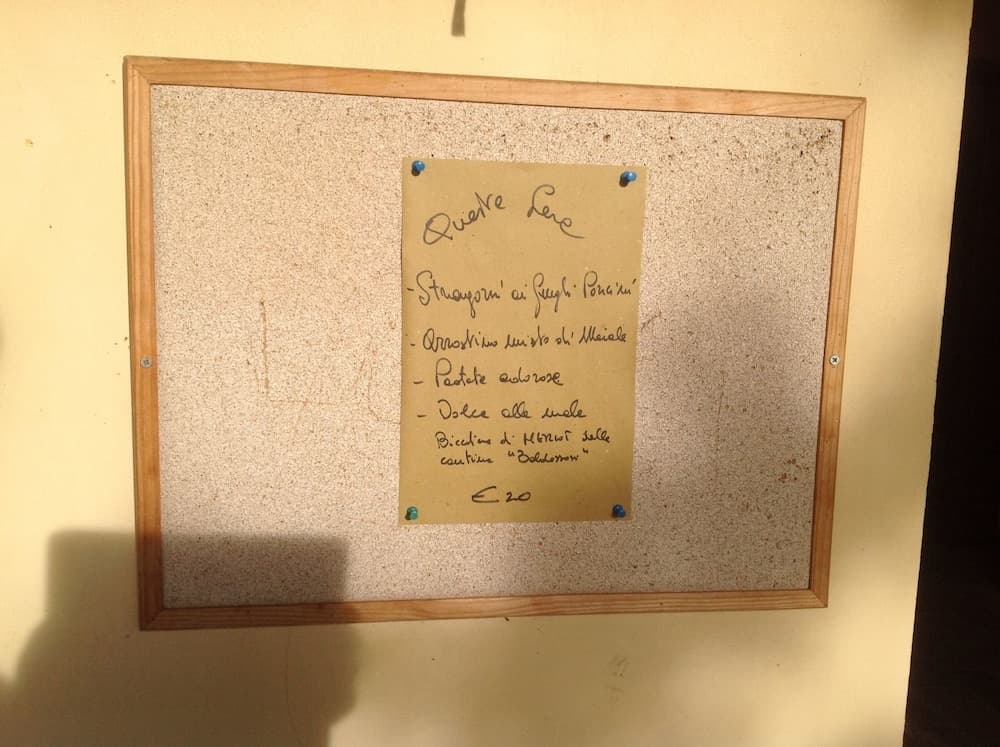 Questa Sera
- Strangozzi ai funghi Porcini
- Arrostino misto di Maiale
- Patate adorose
- Dolce alle mele
Bicchino di MERLOT della
cantina " "
€ 20